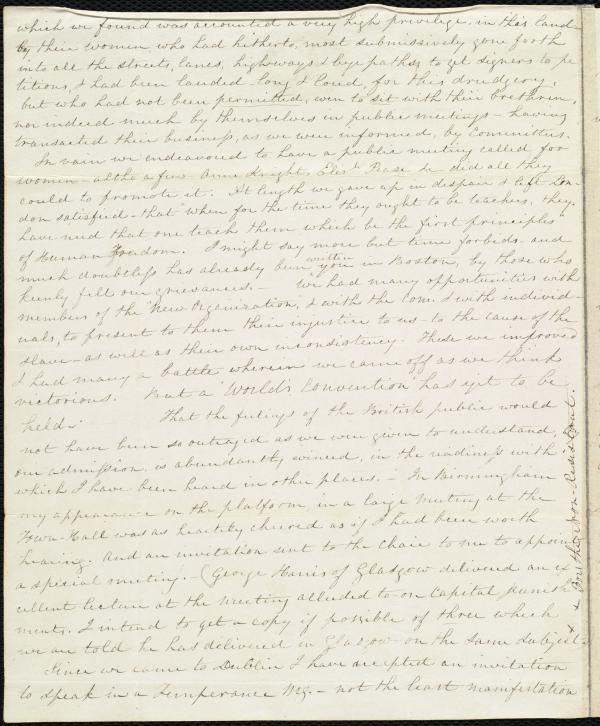 which we found was accounted a very high privilege, in this land
by their women, who had hitherto, most submissively gone forth
into all the streets, lanes, highways & bye paths, to get signers to pe
titions, & had been lauded long & loud, for this drudgery,
but who had not been permitted, even to sit with their brethren,
nor indeed much by themselves in public meetings - having
transacted their business, as we were informed, by Committees.
In vain we endeavoured to have a public meeting called for
women - altho a few Anne Knight, Elizth Pease &c did all they
could to promote it. At length we gave up in despair & left Lon-
don satisfied - that "when for the time they ought to be teachers, they
have need that one teach them which be the first principles"
of Human Freedom. I might say more but time forbids - and
much doubtless has already been written you in Boston, by those who
keenly felt our grievances. - We had many opportunities with
members of the "New Organization", & with the Com. & with individ-
uals, to present to them their injustice to us - to the cause of the
slave - as well as their own inconsistency. These we improved
& had many a battle wherein we came off as we think
victorious. But a "World's Convention" has yet to be
held. - That the feelings of the British public would
not have been so outraged as we were given to understand, by
our admission, is abundantly evinced, in the readiness with
which I have been heard in other places. - In Birmingham
my appearance on the platform, in a large meeting at the
Town-Hall was as heartily cheered as if I had been worth
hearing. And an invitation sent to the Chair to me to appoint
a special meeting. - (George Harris of Glasgow delivered an ex
cellent lecture at the meeting alluded to - on Capital punish
ments. I intend to get a copy if possible of three which
we are told he has delivered in Glasgow on the same subject.
Since we came to Dublin I have accepted an invitation
to speak in a Temperance Mg. - not the least manifestation
+ + Brother non-resistant.